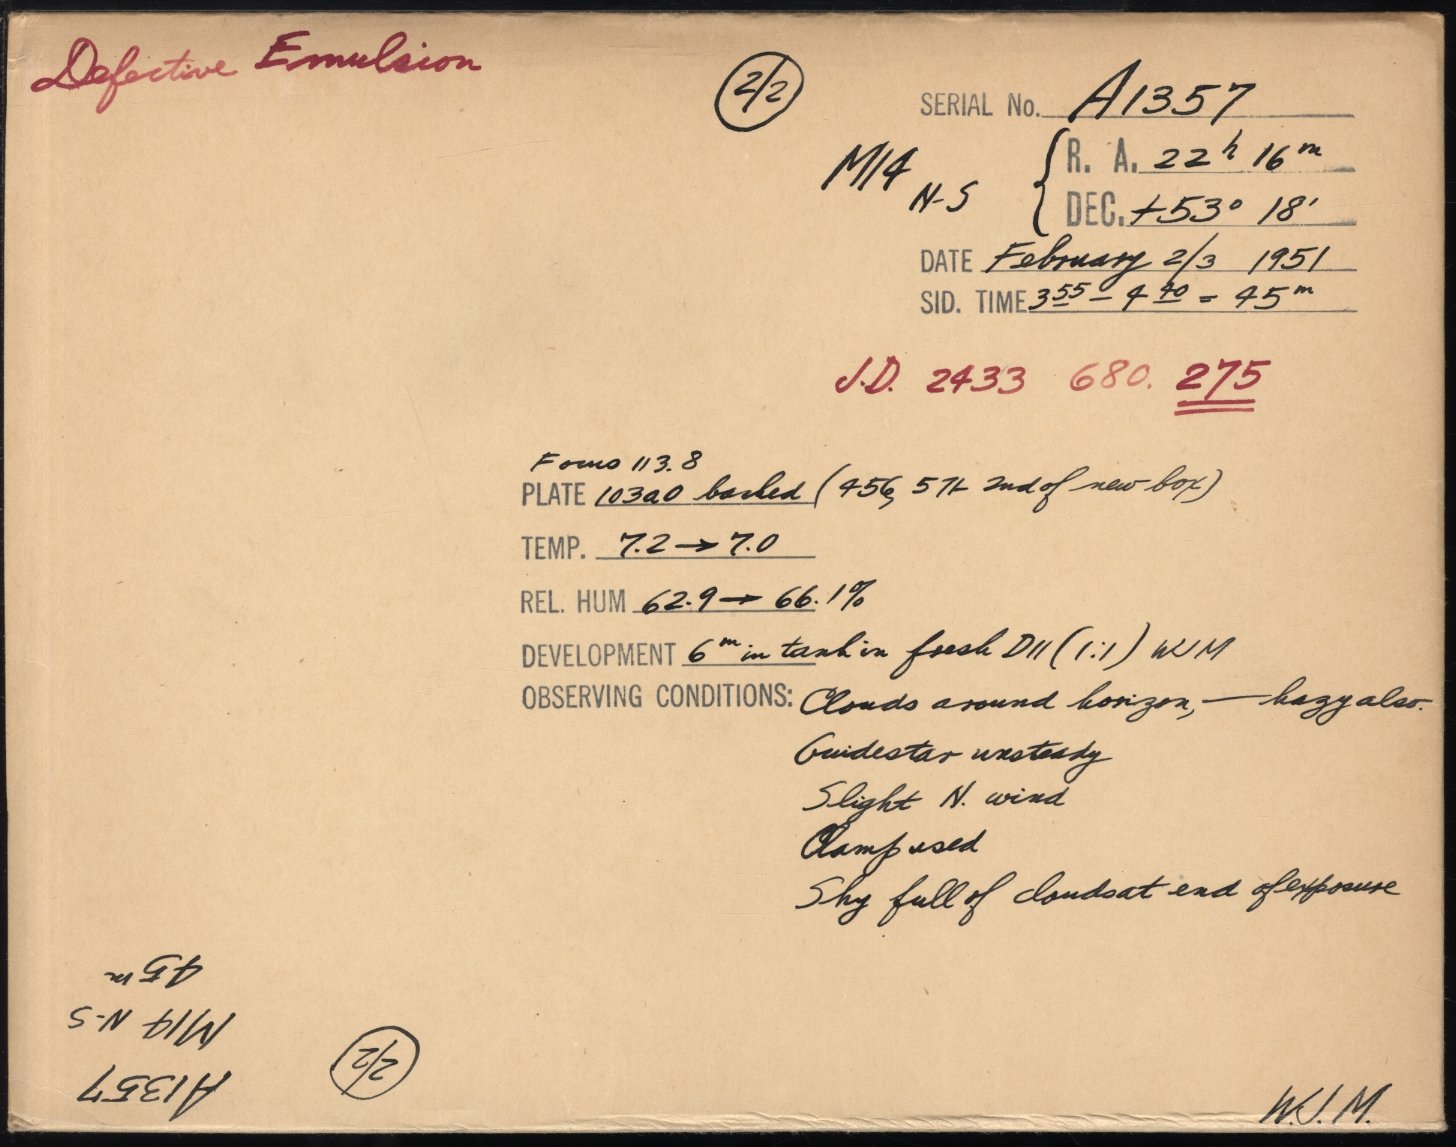 Defective Emulsion
2/2
SERIAL No. A1357
M14 N-S
R. A. 22h 16m
DEC. +53° 18'
DATE February 2/3 1951
SID. TIME 3 55 - 4 40 = 45m
J.D. 2433 680. 275
Focus 113.8
PLATE 103a0 backed ( 2nd of new box)
TEMP. 7.2 → 7.0
REL. HUM 62.9 → 66.1%
DEVELOPMENT 6m in tank in fresh D11 (1:1) WJM
OBSERVING CONDITIONS: Clouds around horizon, — hazy also.
Guidestar unsteady
Slight N. wind
Clamp used
Sky full of clouds at end of exposure
A1357
M14 N-S
45m
2/2
W.J.M.